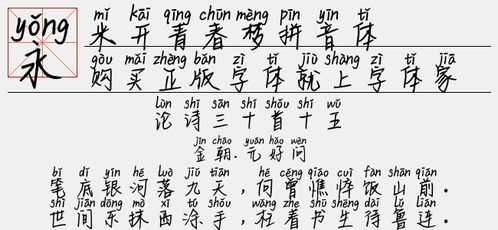 yǒng
永
mǐ kāi qīng chūn mèng pīn yīn tǐ
米开青春梦拼音体
gòu mǎi zhèng bǎn zì tǐ jiù shàng zì tǐ jiā
购买正版字体就上字体家
lùn shī sān shí shǒu shí wǔ
论诗三十首十五
jīn cháo yuán hǎo wèn
金朝.元好问
bǐ dǐ yín hé luò jiǔ tiān hé céng qiáo cuì fàn shān qián
笔底银河落九天,何曾憔悴饭山前.
shì jiān dōng mò xī tú shǒu wǎng zhe shū shēng dài lǔ lián
世间东抹西涂手,枉着书生待鲁连.